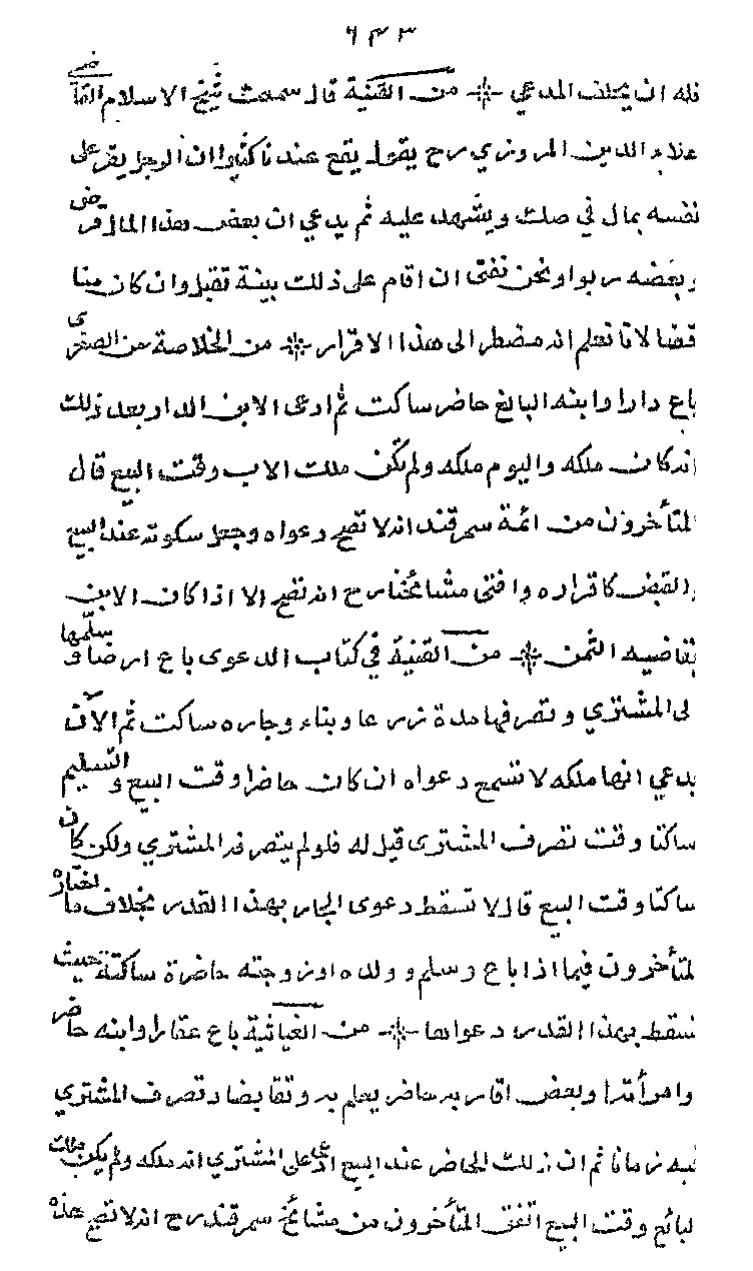 ٦٤٣
فله ان يحلف المدعي ※ من القنية قال سمعت شيخ الاسلام القاضي
علاء الدين المروزي رح يقول يقع عندنا كثيرا ان الرجل يقر على
نفسه بمال في صك ويشهد عليه ثم يدعي ان بعض هذا المال قرض
وبعضه ربوا ونحن نفتى ان اقام على ذلك بينة تقبل وان كان منا
قضا لانا نعلم انه مضطر الى هذا الاقرار ※ من الخلاصة من الصغرى
باع دارا وابنه البالغ حاضر ساكت ثم ادعى الابن الدار بعد ذلك
انه كان ملكه واليوم ملكه ولم تكن ملك الاب وقت البيع قال
لمتأخرون من ائمة سمرقند انه لا تصح دعواه وجعل سكوته عند البيع
والقبض كاقراره وافتى مشائخنا رح انه تصح الا اذا كان الابن
يقاضيه الثمن ※ من القنية في كتاب الدعوى باع ارضا وسلمها
لى المشتري وتصرفها مدة زرعا وبناء وجاره ساكت ثم الآن
يدعي انها ملكه لا تسمع دعواه ان كان حاضرا وقت البيع والتسليم
ساكتا وقت تصرف المشترى قيل له فلو لم يتصرفه المشتري ولكن كان
ساكتا وقت البيع قال لا تسقط دعوى الجار بهذا القدر بخلاف ما اختاره
لمتأخرون فيما اذا باع وسلم وولده او زوجته حاضرة ساكتة حيث
تسقط بهذا القدر دعواها ※ من الغياثية باع عقارا وابنه حاضر
وامرأته او بعض اقاربه حاضر يعلم به وتقابضا وتصرف المشتري
فيه زمانا ثم ان ذلك الحاضر عند البيع ادعى على المشتري انه ملكه ولم يكن ملك
لبائع وقت البيع اتفق المتأخرون من مشائخ سمرقند رح انه لا تصح هذه